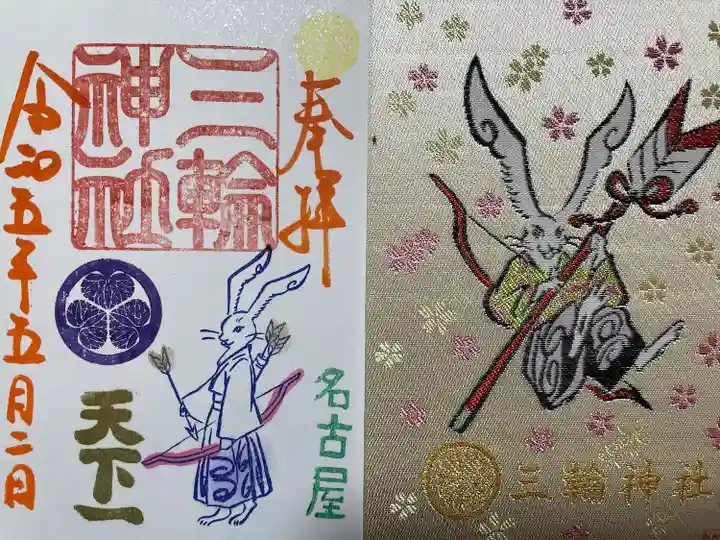 奉拝
三輪
神社
令和五年五月二日
天下一
名古屋
三輪神社